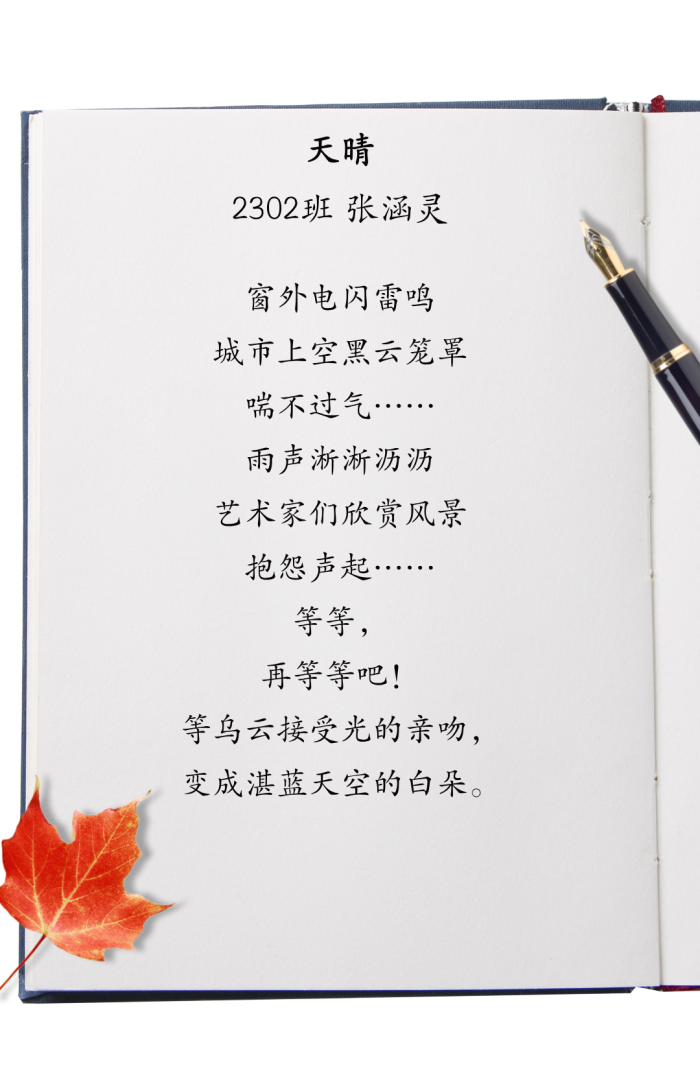 天晴
2302班 张涵灵
窗外电闪雷鸣
城市上空黑云笼罩
喘不过气……
雨声淅淅沥沥
艺术家们欣赏风景
抱怨声起……
等等，
再等等吧！
等乌云接受光的亲吻，
变成湛蓝天空的白朵。